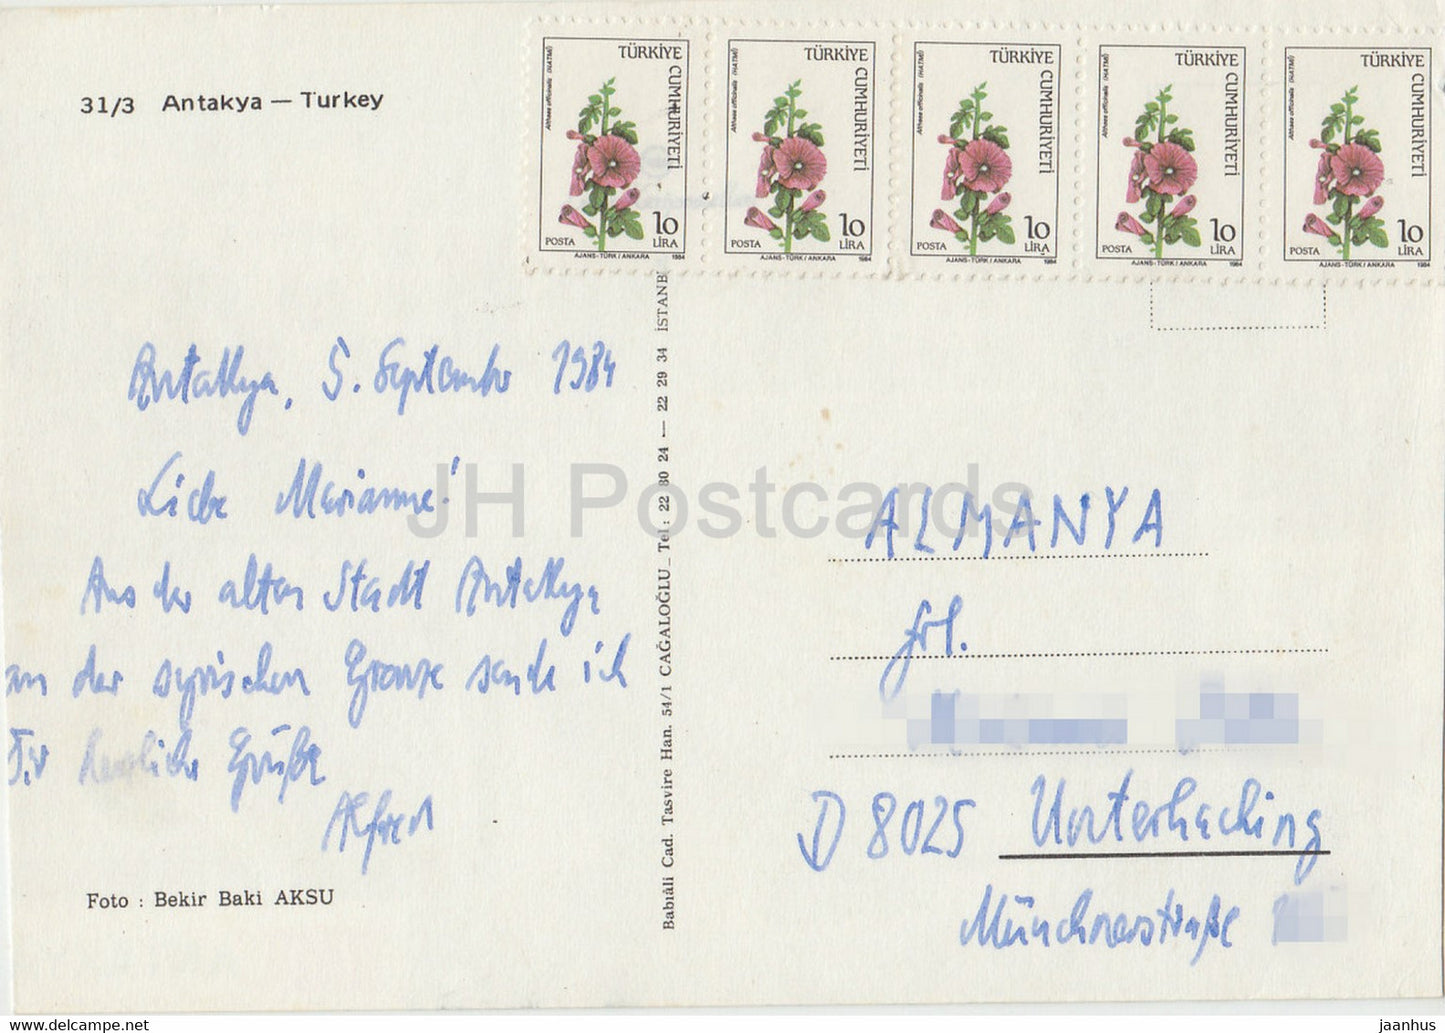 31/3 Antakya — Turkey
Althaea officinalis (HATMİ)
TÜRKİYE CUMHURİYETİ
POSTA
10 LİRA
AJANS-TÜRK / ANKARA 1984
Althaea officinalis (HATMİ)
TÜRKİYE CUMHURİYETİ
POSTA
10 LİRA
AJANS-TÜRK / ANKARA 1984
Althaea officinalis (HATMİ)
TÜRKİYE CUMHURİYETİ
POSTA
10 LİRA
AJANS-TÜRK / ANKARA 1984
Althaea officinalis (HATMİ)
TÜRKİYE CUMHURİYETİ
POSTA
10 LİRA
AJANS-TÜRK / ANKARA 1984
Althaea officinalis (HATMİ)
TÜRKİYE CUMHURİYETİ
POSTA
10 LİRA
AJANS-TÜRK / ANKARA 1984
Antakya, 5. September 1984
Liebe Marianne!
Aus der alten Stadt Antakya
an der syrischen Grenze sende ich
Dir herzliche Grüße
Alfred
Foto : Bekir Baki AKSU
Babıâli Cad. Tasvire Han. 54/1 CAĞALOĞLU_ Tel : 22 80 24 — 22 29 34 İSTANB
ALMANYA
Frl.
D 8025 Unterhaching
Münchnerstraße
JH Postcards
www.hippostcard.com
jaanhus